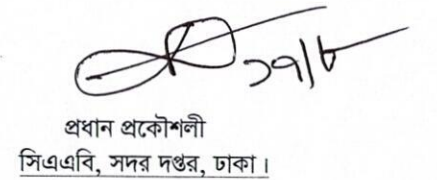 ১৭/৮
প্রধান প্রকৌশলী
সিএএবি, সদর দপ্তর, ঢাকা।